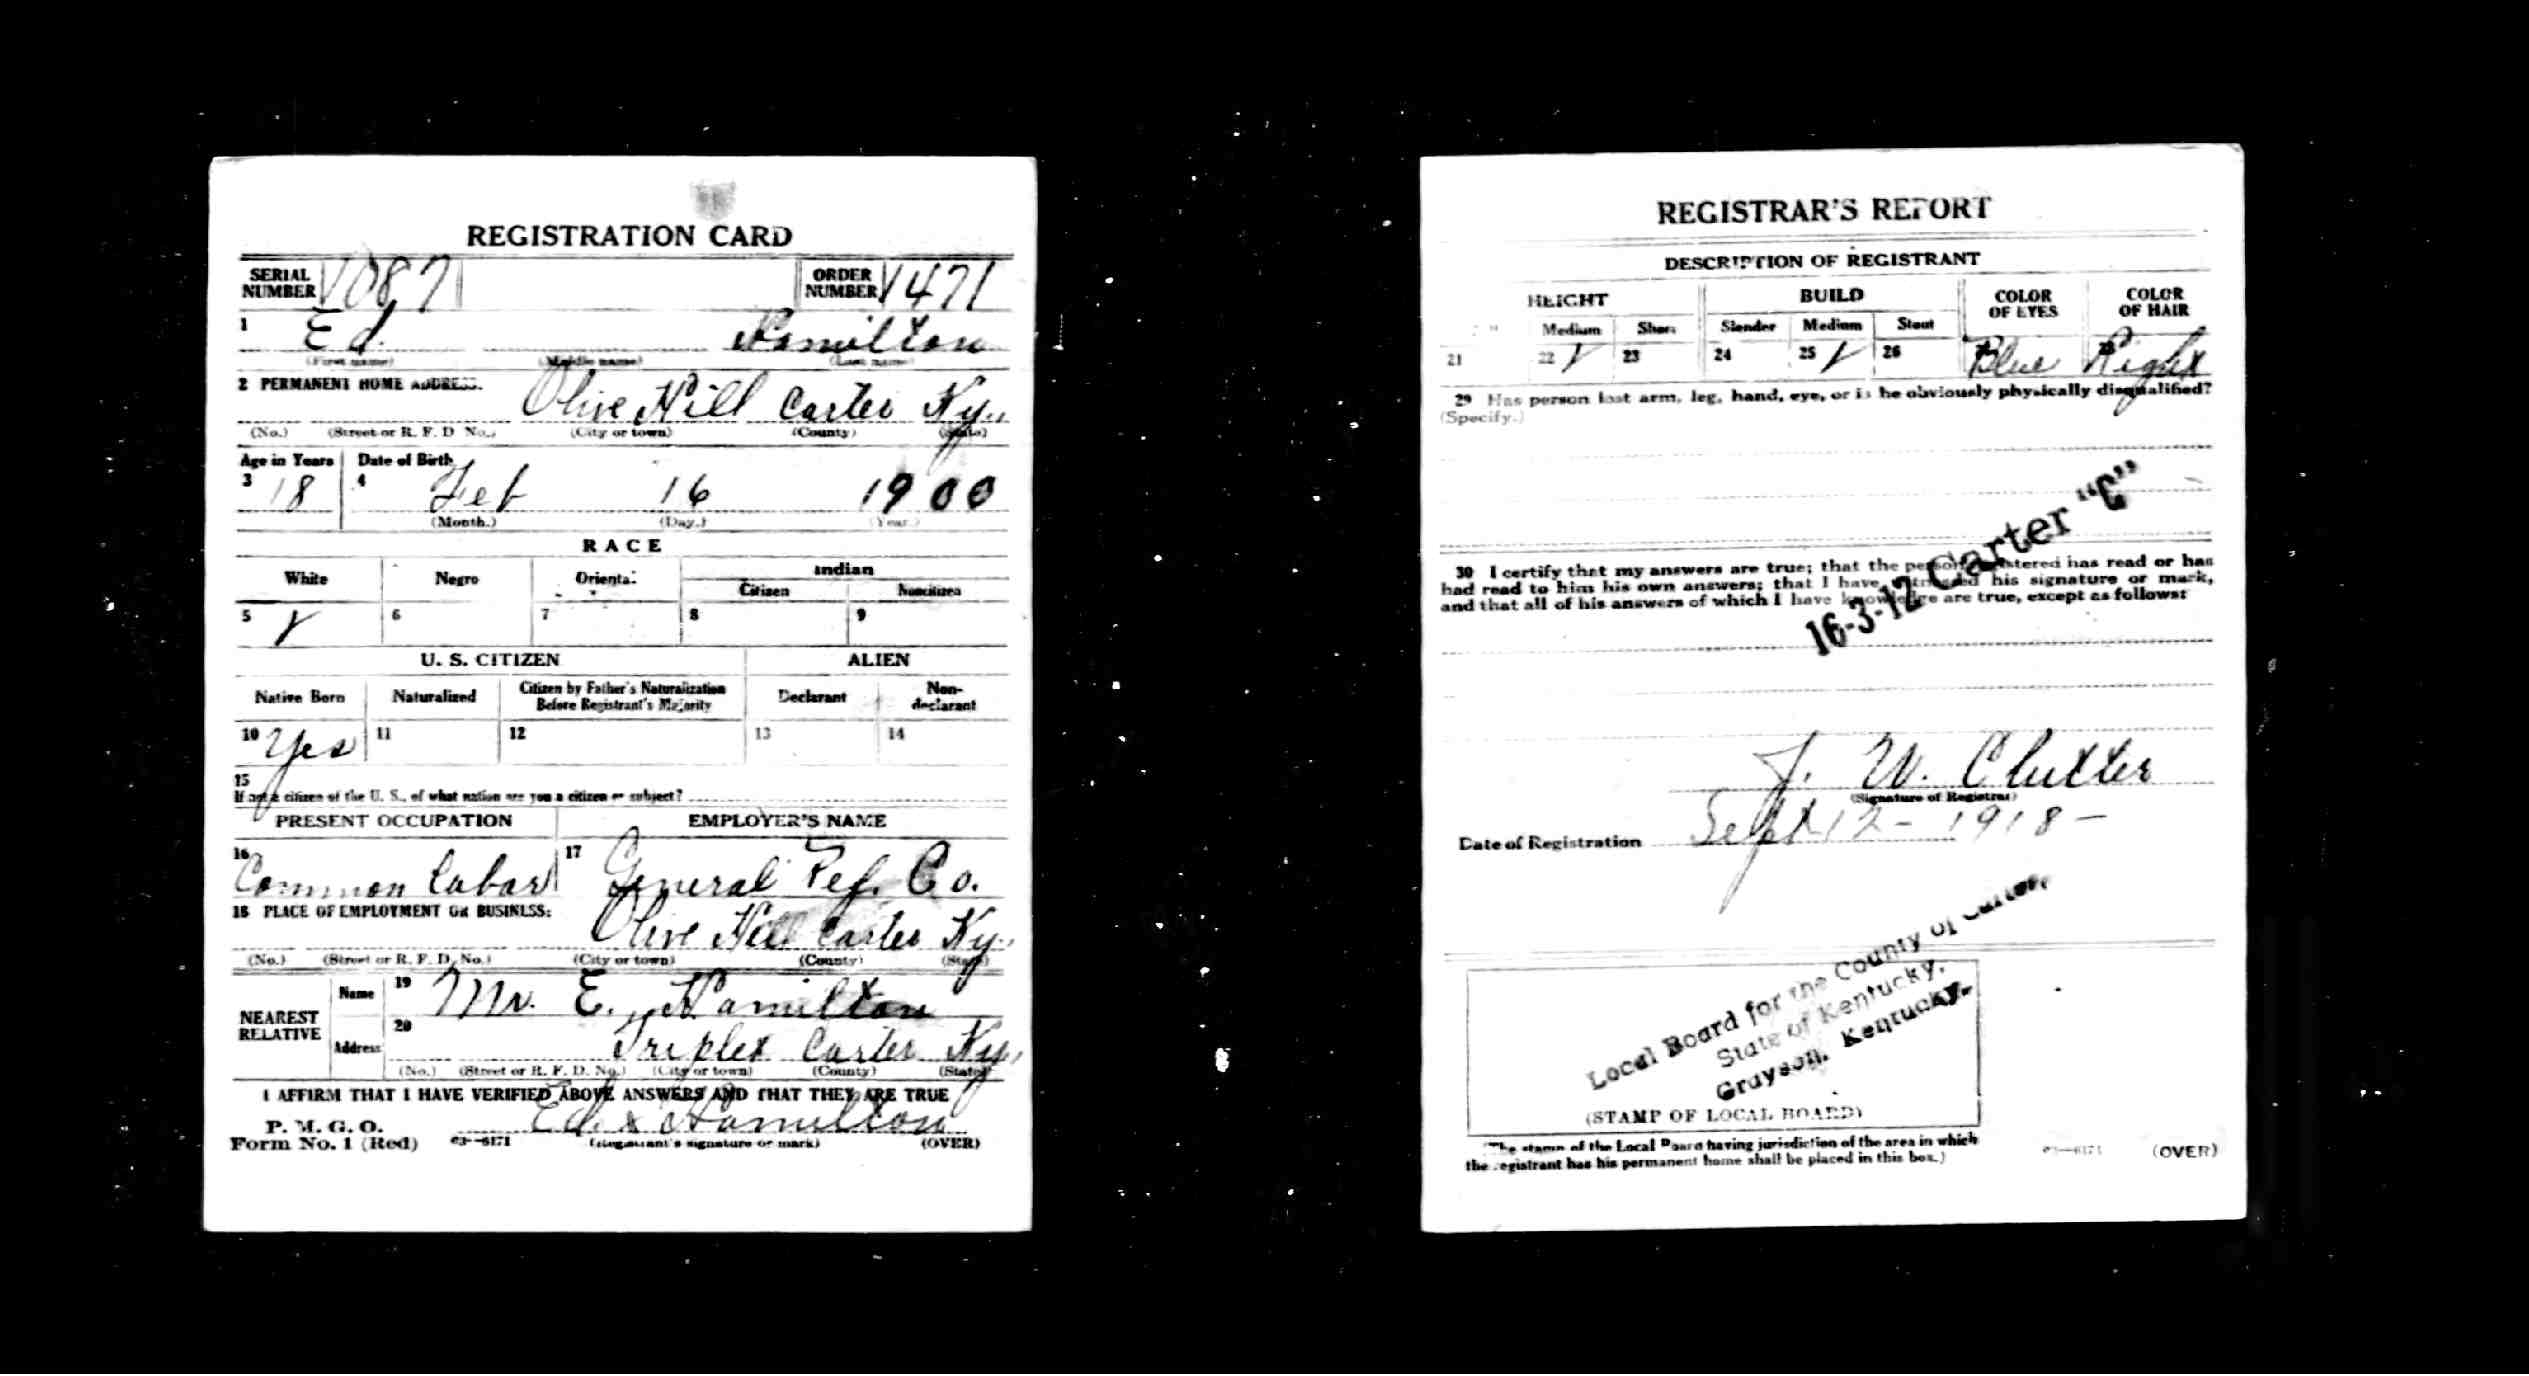 REGISTRATION CARD
SERIAL NUMBER 1087 ORDER NUMBER 1471
1 Ed. Hamilton
(First name) (Middle name) (Last name)
2 PERMANENT HOME ADDRESS.
Olive Hill Carter Ky.
(No.) (Street or R. F. D No.) (City or town) (County) (State)
Age in Years Date of Birth
3 18 4 Feb 16 1900
(Month.) (Day.) (Year.)
RACE
White Negro Oriental Indian
Citizen Noncitizen
5 √ 6 7 8 9
U. S. CITIZEN ALIEN
Native Born Naturalized Citizen by Father's Naturalization Before Registrant's Majority Declarant Non-declarant
10 Yes 11 12 13 14
15
If not a citizen of the U. S., of what nation are you a citizen or subject?
PRESENT OCCUPATION EMPLOYER'S NAME
16 Common labor 17 General Ref. Co.
18 PLACE OF EMPLOYMENT OR BUSINESS:
Olive Hill Carter Ky.
(No.) (Street or R. F. D. No.) (City or town) (County) (State)
NEAREST RELATIVE
Name 19 Mr. E. Hamilton
Address 20 Triplet Carter Ky.
(No.) (Street or R. F. D. No.) (City or town) (County) (State)
I AFFIRM THAT I HAVE VERIFIED ABOVE ANSWERS AND THAT THEY ARE TRUE
P. M. G. O.
Form No. 1 (Red) 03—6171 Ed. x Hamilton
(Registrant's signature or mark) (OVER)
REGISTRAR'S REPORT
DESCRIPTION OF REGISTRANT
HEIGHT BUILD COLOR OF EYES COLOR OF HAIR
Medium Short Slender Medium Stout
21 22 √ 23 24 25 √ 26 Blue
29 Has person lost arm, leg, hand, eye, or is he obviously physically disqualified?
(Specify.)
16-3-12 Carter "C"
30 I certify that my answers are true; that the person registered has read or has
had read to him his own answers; that I have witnessed his signature or mark,
and that all of his answers of which I have knowledge are true, except as follows:
J. W. Clutter
(Signature of Registrar)
Date of Registration Sept 12 - 1918 -
Local Board for the County of Carter,
State of Kentucky,
Grayson, Kentucky.
(STAMP OF LOCAL BOARD)
(The stamp of the Local Board having jurisdiction of the area in which
the registrant has his permanent home shall be placed in this box.)
03—6171 (OVER)